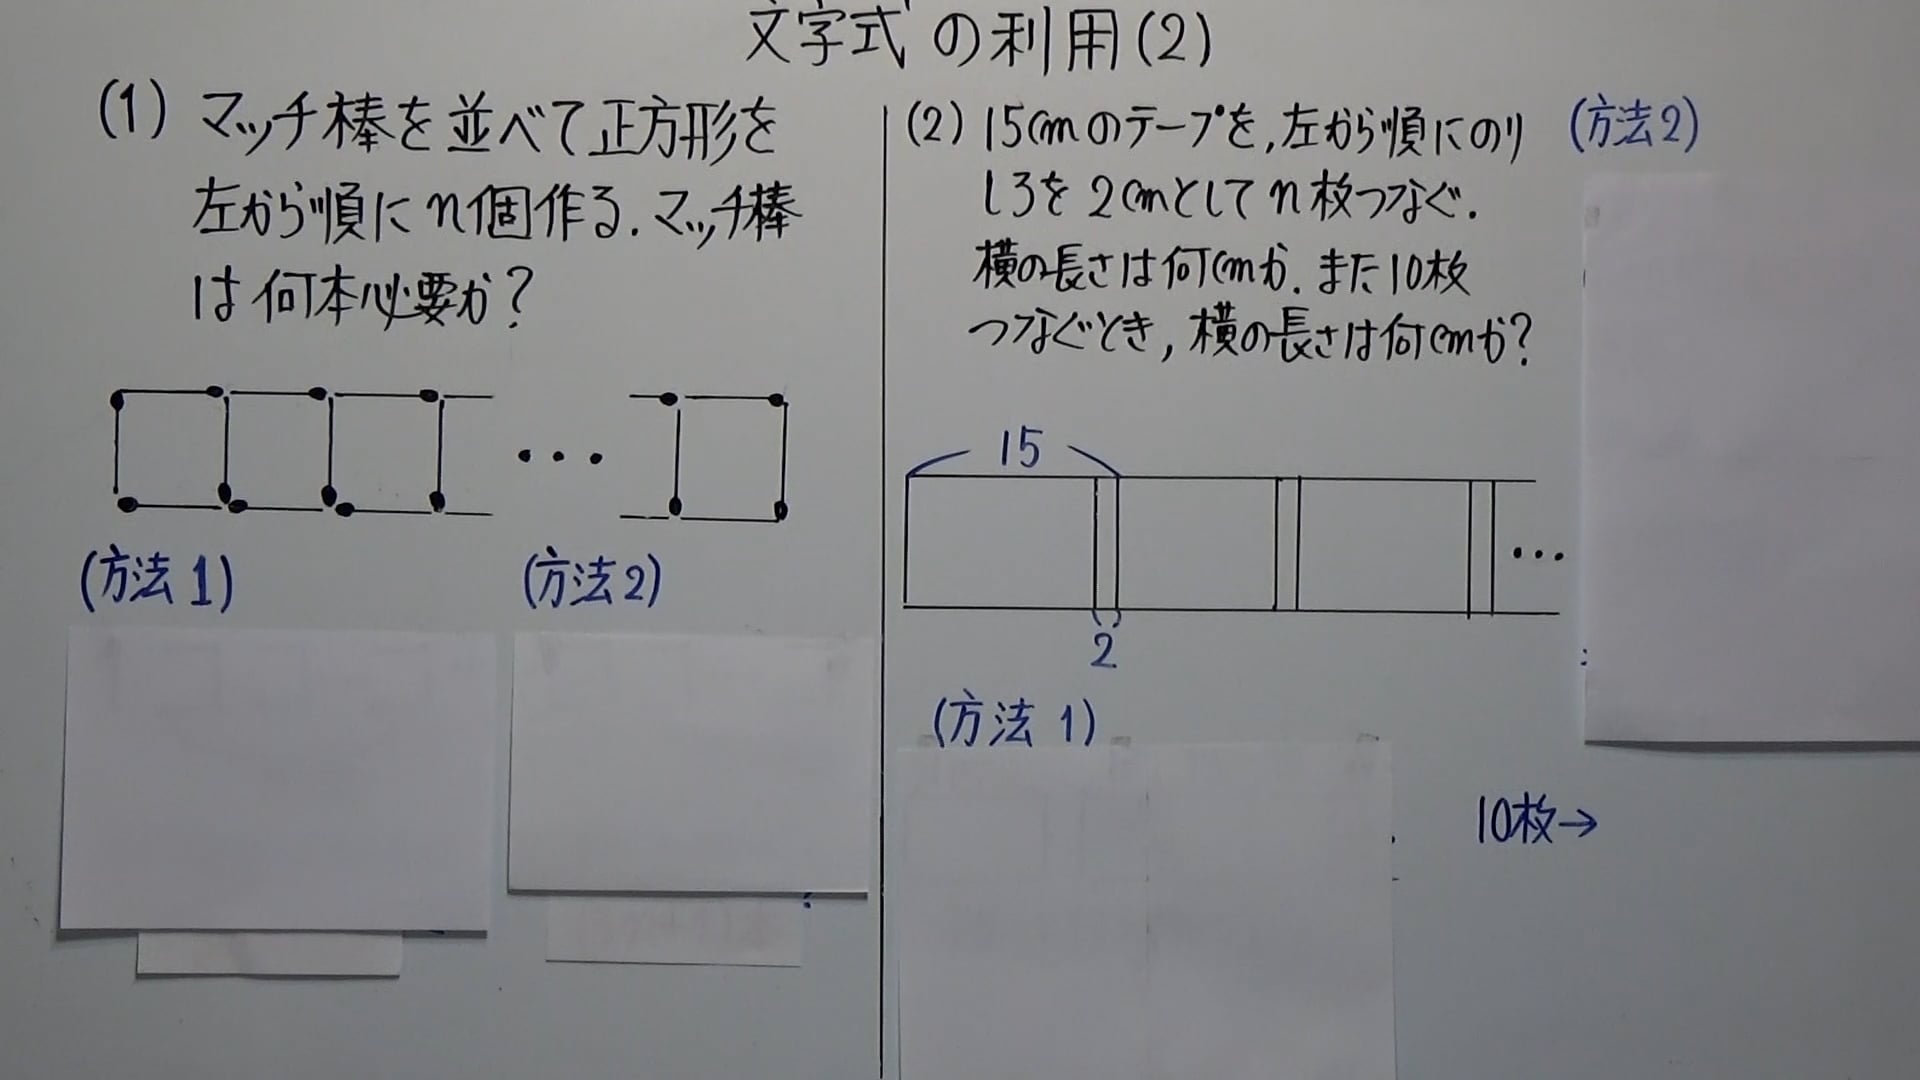 文字式の利用(2)
(1) マッチ棒を並べて正方形を
左から順にn個作る.マッチ棒
は何本必要か?
(方法1)
(方法2)
(2) 15cmのテープを,左から順にのり
しろを2cmとしてn枚つなぐ.
横の長さは何cmか.また10枚
つなぐとき,横の長さは何cmか?
15
2
(方法1)
(方法2)
10枚→